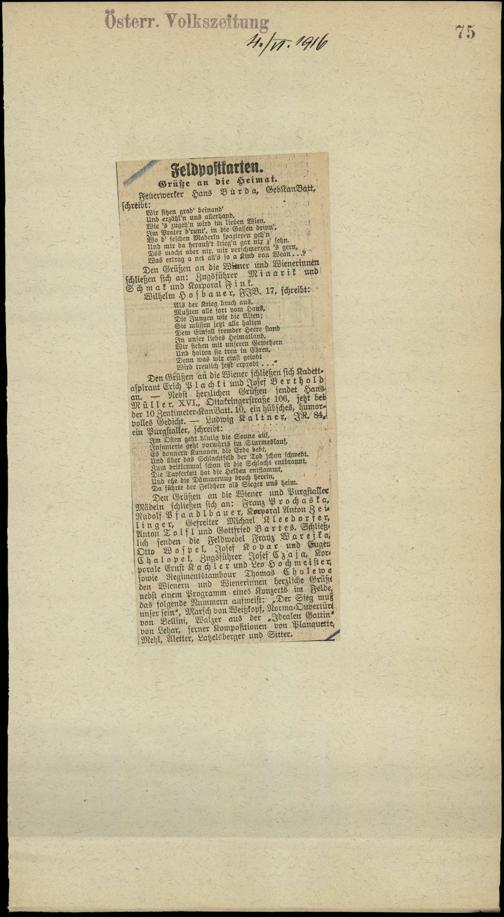 Österr. Volkszeitung
4./VI. 1916
75
Feldpostkarten.
Grüße an die Heimat.
Feuerwerker Hans Burda, GebKanBatt,
schreibt:
Wir sitzen grad' beinand'
Und erzähl'n uns allerhand,
Wie 's zugeh'n wird im lieben Wien.
Im Prater d'runt', in die Gassen drinn',
Wo d' feschen Maderln spazieren geh'n
Und mir da heraußt krieg'n gar nix z' sehn.
Dös macht aber nix, mir verschmerzen 's gern,
Was ertrag a net all's so a Kind von Wean . . .?
Den Grüßen an die Wiener und Wienerinnen
schließen sich an: Zugsführer Minarik und
Schmak und Korporal Fink.
Wilhelm Hofbauer, FJB. 17, schreibt:
Als der Krieg brach aus,
Mußten alle fort vom Haus,
Die Jungen wie die Alten;
Sie müssen jetzt alle halten
Dem Einfall fremder Heere stand
In unser liebes Heimatland.
Wir stehen mit unseren Gewehren
Und halten sie treu in Ehren,
Denn was wir einst gelobt
Wird treulich jetzt erprobt . . ."
Den Grüßen an die Wiener schließen sich Kadett-
aspirant Erich Plachki und Josef Berthold
an. — Nebst herzlichen Grüßen sendet Hans
Müller, XVI., Ottakringerstraße 106, jetzt bei
der 10 Zentimeter-KanBatt. 10, ein hübsches, humor-
volles Gedicht. — Ludwig Kaltner, JR. 84,
ein Purgstaller, schreibt:
Im Osten geht blutig die Sonne auf,
Infanterie geht vorwärts im Sturmeslauf,
Es donnern Kanonen, die Erde bebt,
Und über das Schlachtfeld der Tod schon schwebt.
Zum drittenmal schon ist die Schlacht entbrannt,
Die Tapferkeit hat die Helden entflammt,
Und ehe die Dämmerung brach herein,
Da führte der Feldherr als Sieger uns heim.
Den Grüßen an die Wiener und Purgstaller
Mädeln schließen sich an: Franz Prochaska,
Rudolf Pfandlbauer, Korporal Anton Zei-
linger, Gefreiter Michael Kleedorfer,
Anton Tolfl und Gottfried Bartes. Schließ-
lich senden die Feldwebel Franz Warejka,
Otto Wospel, Josef Kovar und Eugen
Chalopek, Zugsführer Josef Czaja, Kor-
porale Ernst Kachler und Leo Hochmeister,
sowie Regimentstambour Thomas Cholewe
den Wienern und Wienerinnen herzliche Grüße
nebst einem Programm eines Konzerts im Felde,
das folgende Nummern aufweist: „Der Sieg muß
unser sein", Marsch von Weißkopf, Norma-Ouvertüre
von Bellini, Walzer aus der „Idealen Gattin"
von Lehar, ferner Kompositionen von Planquette,
Metzl, Aletter, Latzelsberger und Sitter.